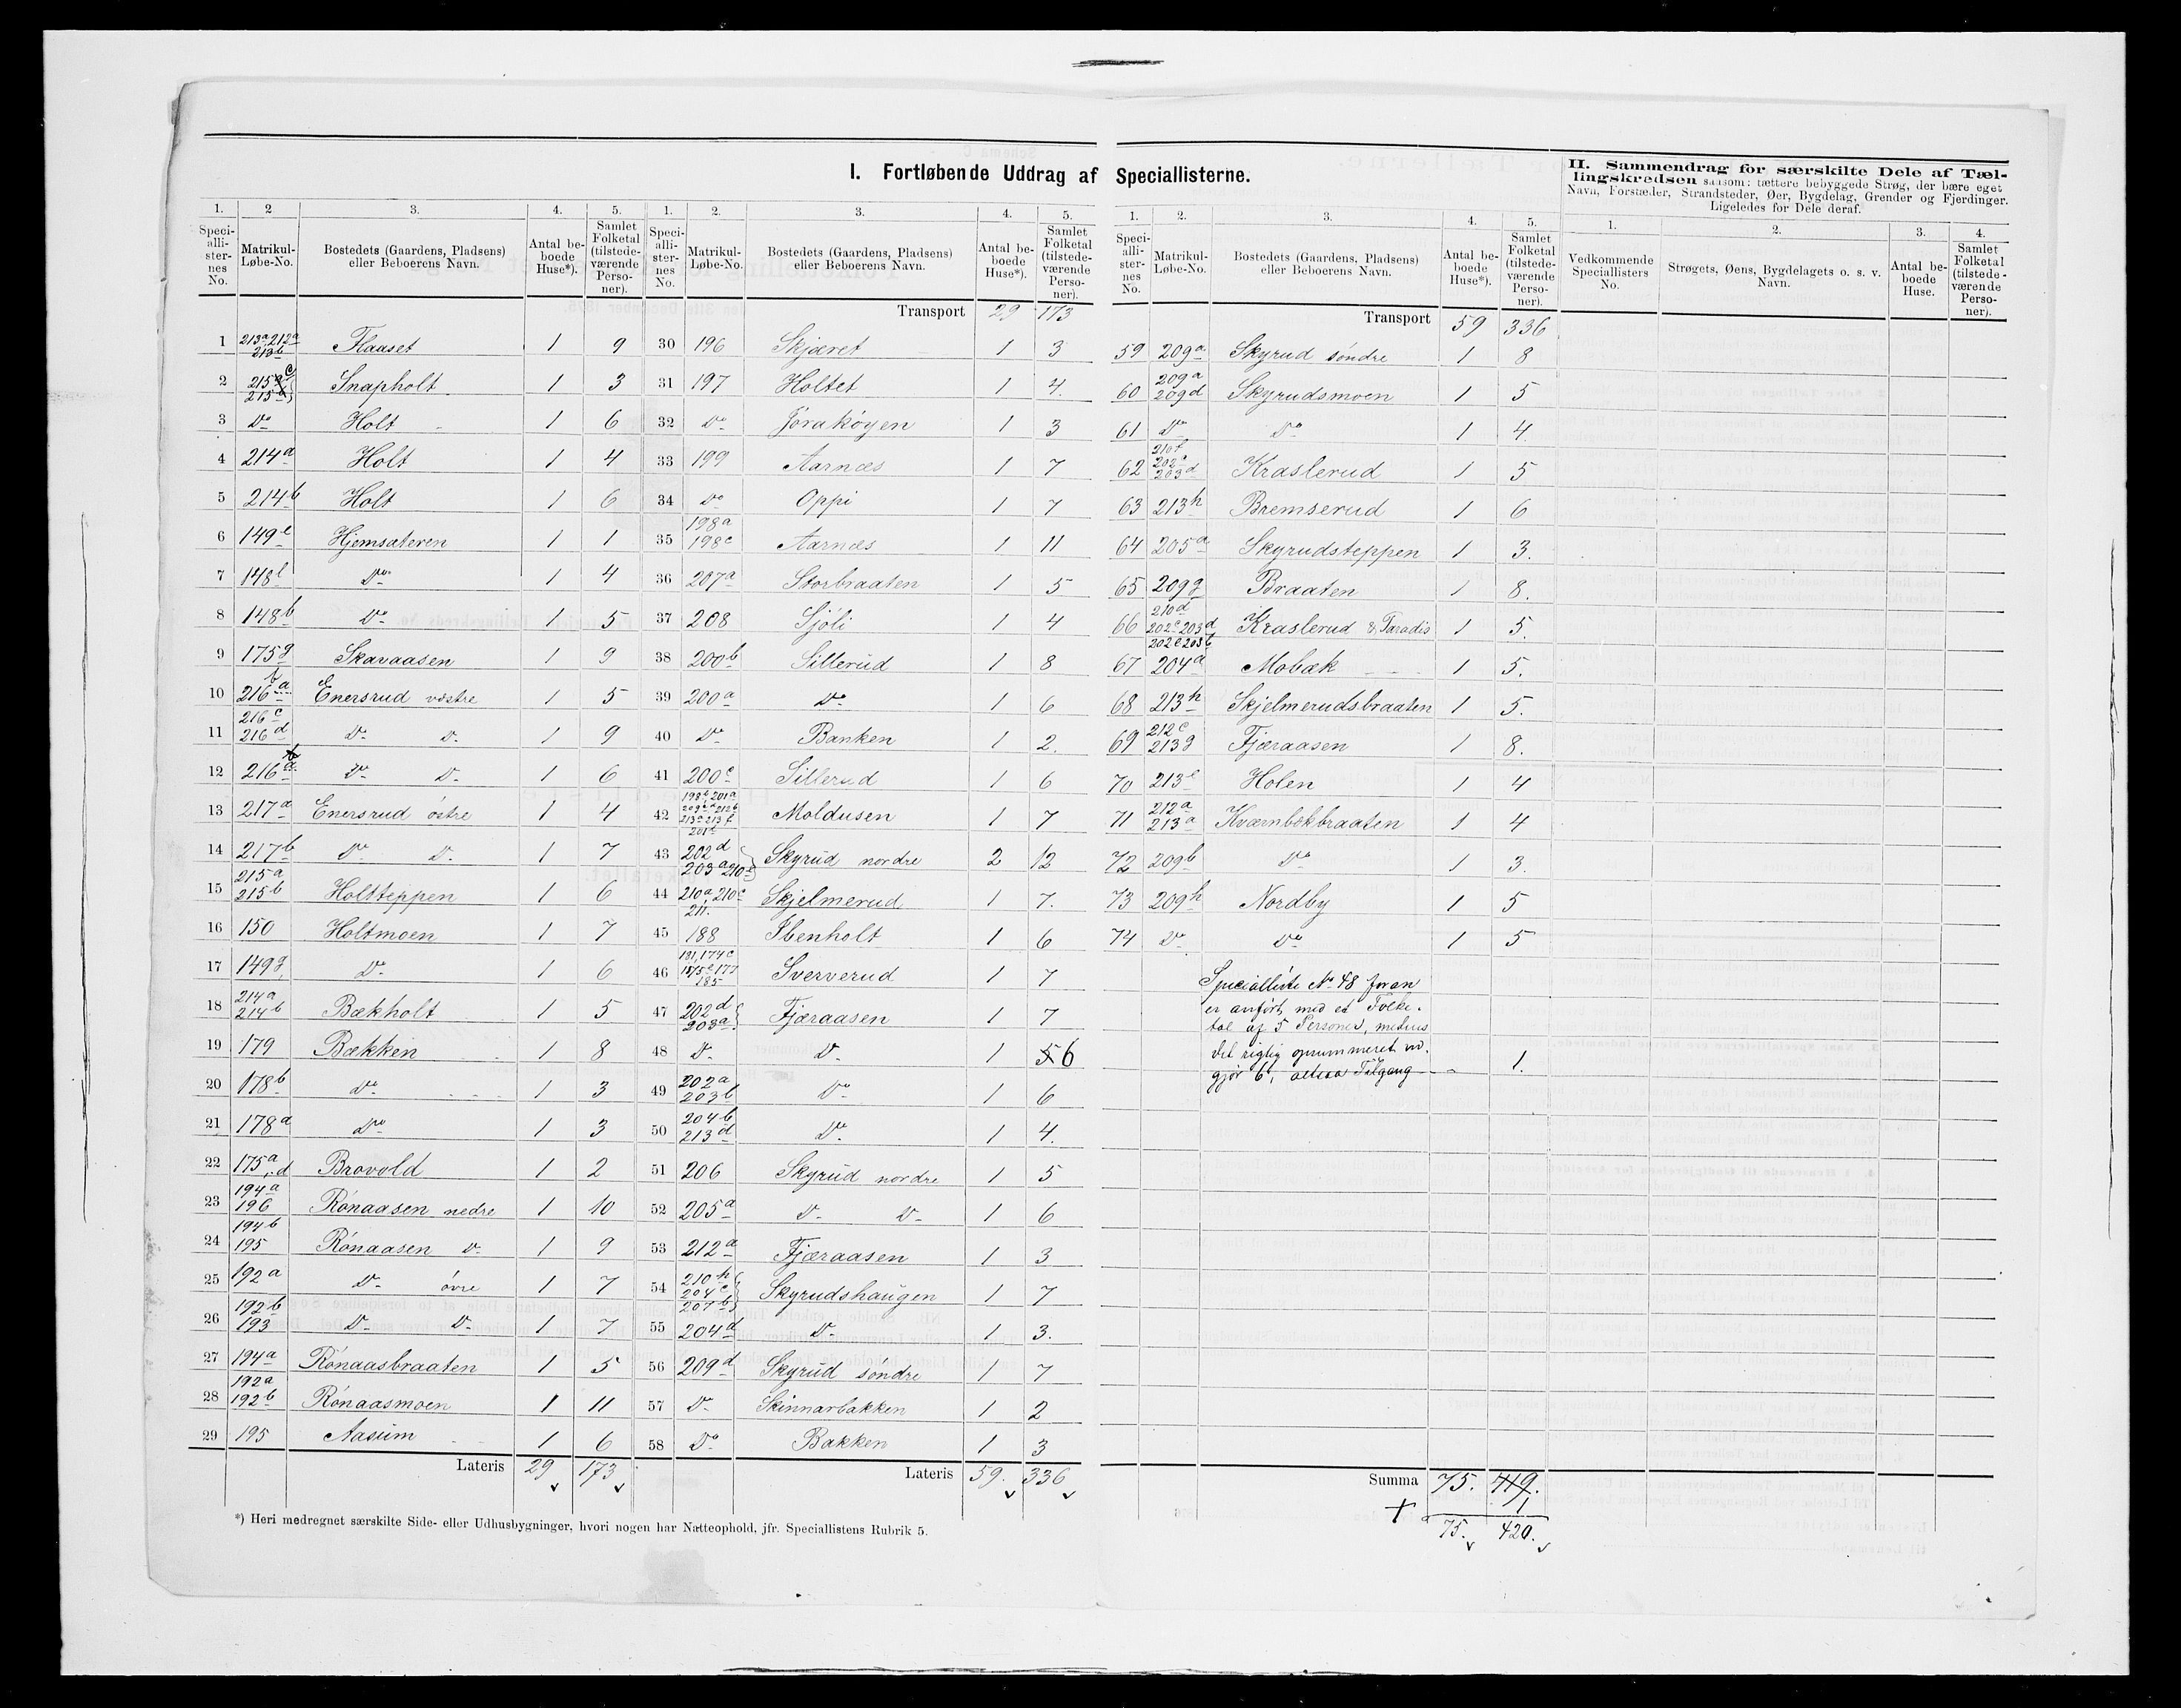 I. Fortløbende Uddrag af Speciallisterne.
II. Sammendrag for særskilte Dele af Tæl-
lingskredsen saasom: tættere bebyggede Strøg, der bære eget
Navn, Forstæder, Strandsteder, Øer, Bygdelag, Grender og Fjerdinger.
Ligeledes for Dele deraf.
1. 2 3. 4. 5.
Speci-alli-ster-nes No. Matrikul-Løbe-No. Bostedets (Gaardens, Pladsens) eller Beboerens Navn. Antal be-boede Huse*). Samlet Folketal (tilstede-værende Perso-ner).
1 213a 212a 213b Flaaset 1 9
2 215c 215d Snapholt 1 3
3 Do Holt 1 6
4 214a Holt 1 4
5 214b Holt 1 6
6 149e Hjemsæteren 1 1
7 148l Do 1 4
8 148b Do 1 5
9 175g Skavaasen 1 9
10 216b Enersrud vestre 1 5
11 216c 216d Do D. 1 9
12 216 Do D. 1 6
13 217a Enersrud östre 1 4
14 217b Do D. 1 7
15 215a 215b Holtteppen 1 6
16 150 Holtmoen 1 7
17 149g Do 1 6
18 214a 214b Bækholt 1 5
19 179 Bækken 1 8
20 178b Do 1 3
21 178a Do 1 3
22 175a,d Brovold 1 2
23 194a 196 Rönaasen nedre 1 10
24 194b 195 Rönaasen D. 1 9
25 192a Do övre 1 7
26 192b 193 Do D. 1 7
27 194a Rönaasbraaten 1 5
28 192a 192b Rönaasmoen 1 11
29 195 Aasum 1 6
Lateris 29 173
1. 2. 3. 4. 5.
Speci-alli-ster-nes No. Matrikul-Løbe-No. Bostedets (Gaardens, Pladsens) eller Beboerens Navn. Antal be-boede Huse*). Samlet Folketal (tilstede-værende Perso-ner).
Transport 29 173
30 196 Skjæret 1 3
31 197 Holtet 1 4.
32 Do Jöraköyen 1 3
33 199 Aarnæs 1 7
34 Do Oppi 1 7
35 198a 198c Aarnæs 1 11
36 207a Storbraaten 1 5
37 208 Sjöli 1 4
38 200b Sillerud 1 8
39 200a Do 1 6
40 Do Banken 1 2.
41 200c Sillerud 1 6
42 198b 201a 212b 213c 213f Moldusen 1 7
43 202d 203a 210 Skyrud nordre 2 12
44 210a, 210c 211. Skjelmerud 1 7.
45 188 Ibenholt 1 6
46 181, 174c 177 185 Sververud 1 7
47 202d 203a Fjæraasen 1 7
48 D. D. 1 5 6
49 202a 203b Do 1 6
50 204b 213d Do 1 4.
51 206 Skyrud nordre 1 5
52 205a D. D. 1 6
53 212a Fjæraasen 1 3
54 210h 204c 207b Skyrudshaugen 1 7
55 204d D. 1 3.
56 209d Skyrud söndre 1 7
57 D. Skinnarbakken 1 2
58 Do Bakken 1 3
Lateris 59. 336
1. 2. 3. 4. 5.
Speci-alli-ster-nes No. Matrikul-Løbe-No. Bostedets (Gaardens, Pladsens) eller Beboerens Navn. Antal be-boede Huse*). Samlet Folketal (tilstede-værende Perso-ner).
Transport 59 336
59 209a Skyrud söndre 1 8
60 209a 209d Skyrudsmoen 1 5
61 Do Do 1 4.
62 210f 202c 203d Kraslerud 1 5
63 213h Bremserud 1 6
64 205a Skyrudsteppen 1 3.
65 209g Braaten 1 8.
66 210d 202c 203d Kraslerud & Paradis 1 5.
67 202e 203b 204a Mobæk 1 5.
68 213h Skjelmerudsbraaten 1 5.
69 212c 213g Fjæraasen 1 8.
70 213e Holen 1 4
71 212a 213a Kværnbekbraaten 1 4
72 209b Do 1 3.
73 209h Nordby 1 5
74 Do Do 1 5
Specialliste No 48 foran
er anført med et Folke-
tal af 5 Personer, medens
det rigtig opsummeret ud-
gjør 6, altsaa Tilgang 1.
Summa 75. 419.
+ 1
75. 420.
1. 2. 3. 4.
Vedkommende Speciallisters No. Strøgets, Øens, Bygdelagets o. s. v. Navn. Antal be-boede Huse. Samlet Folketal (tilstede-værende Perso-ner).
*) Heri medregnet særskilte Side- eller Udhusbygninger, hvori nogen har Natteophold, jfr. Speciallistens Rubrik 5.